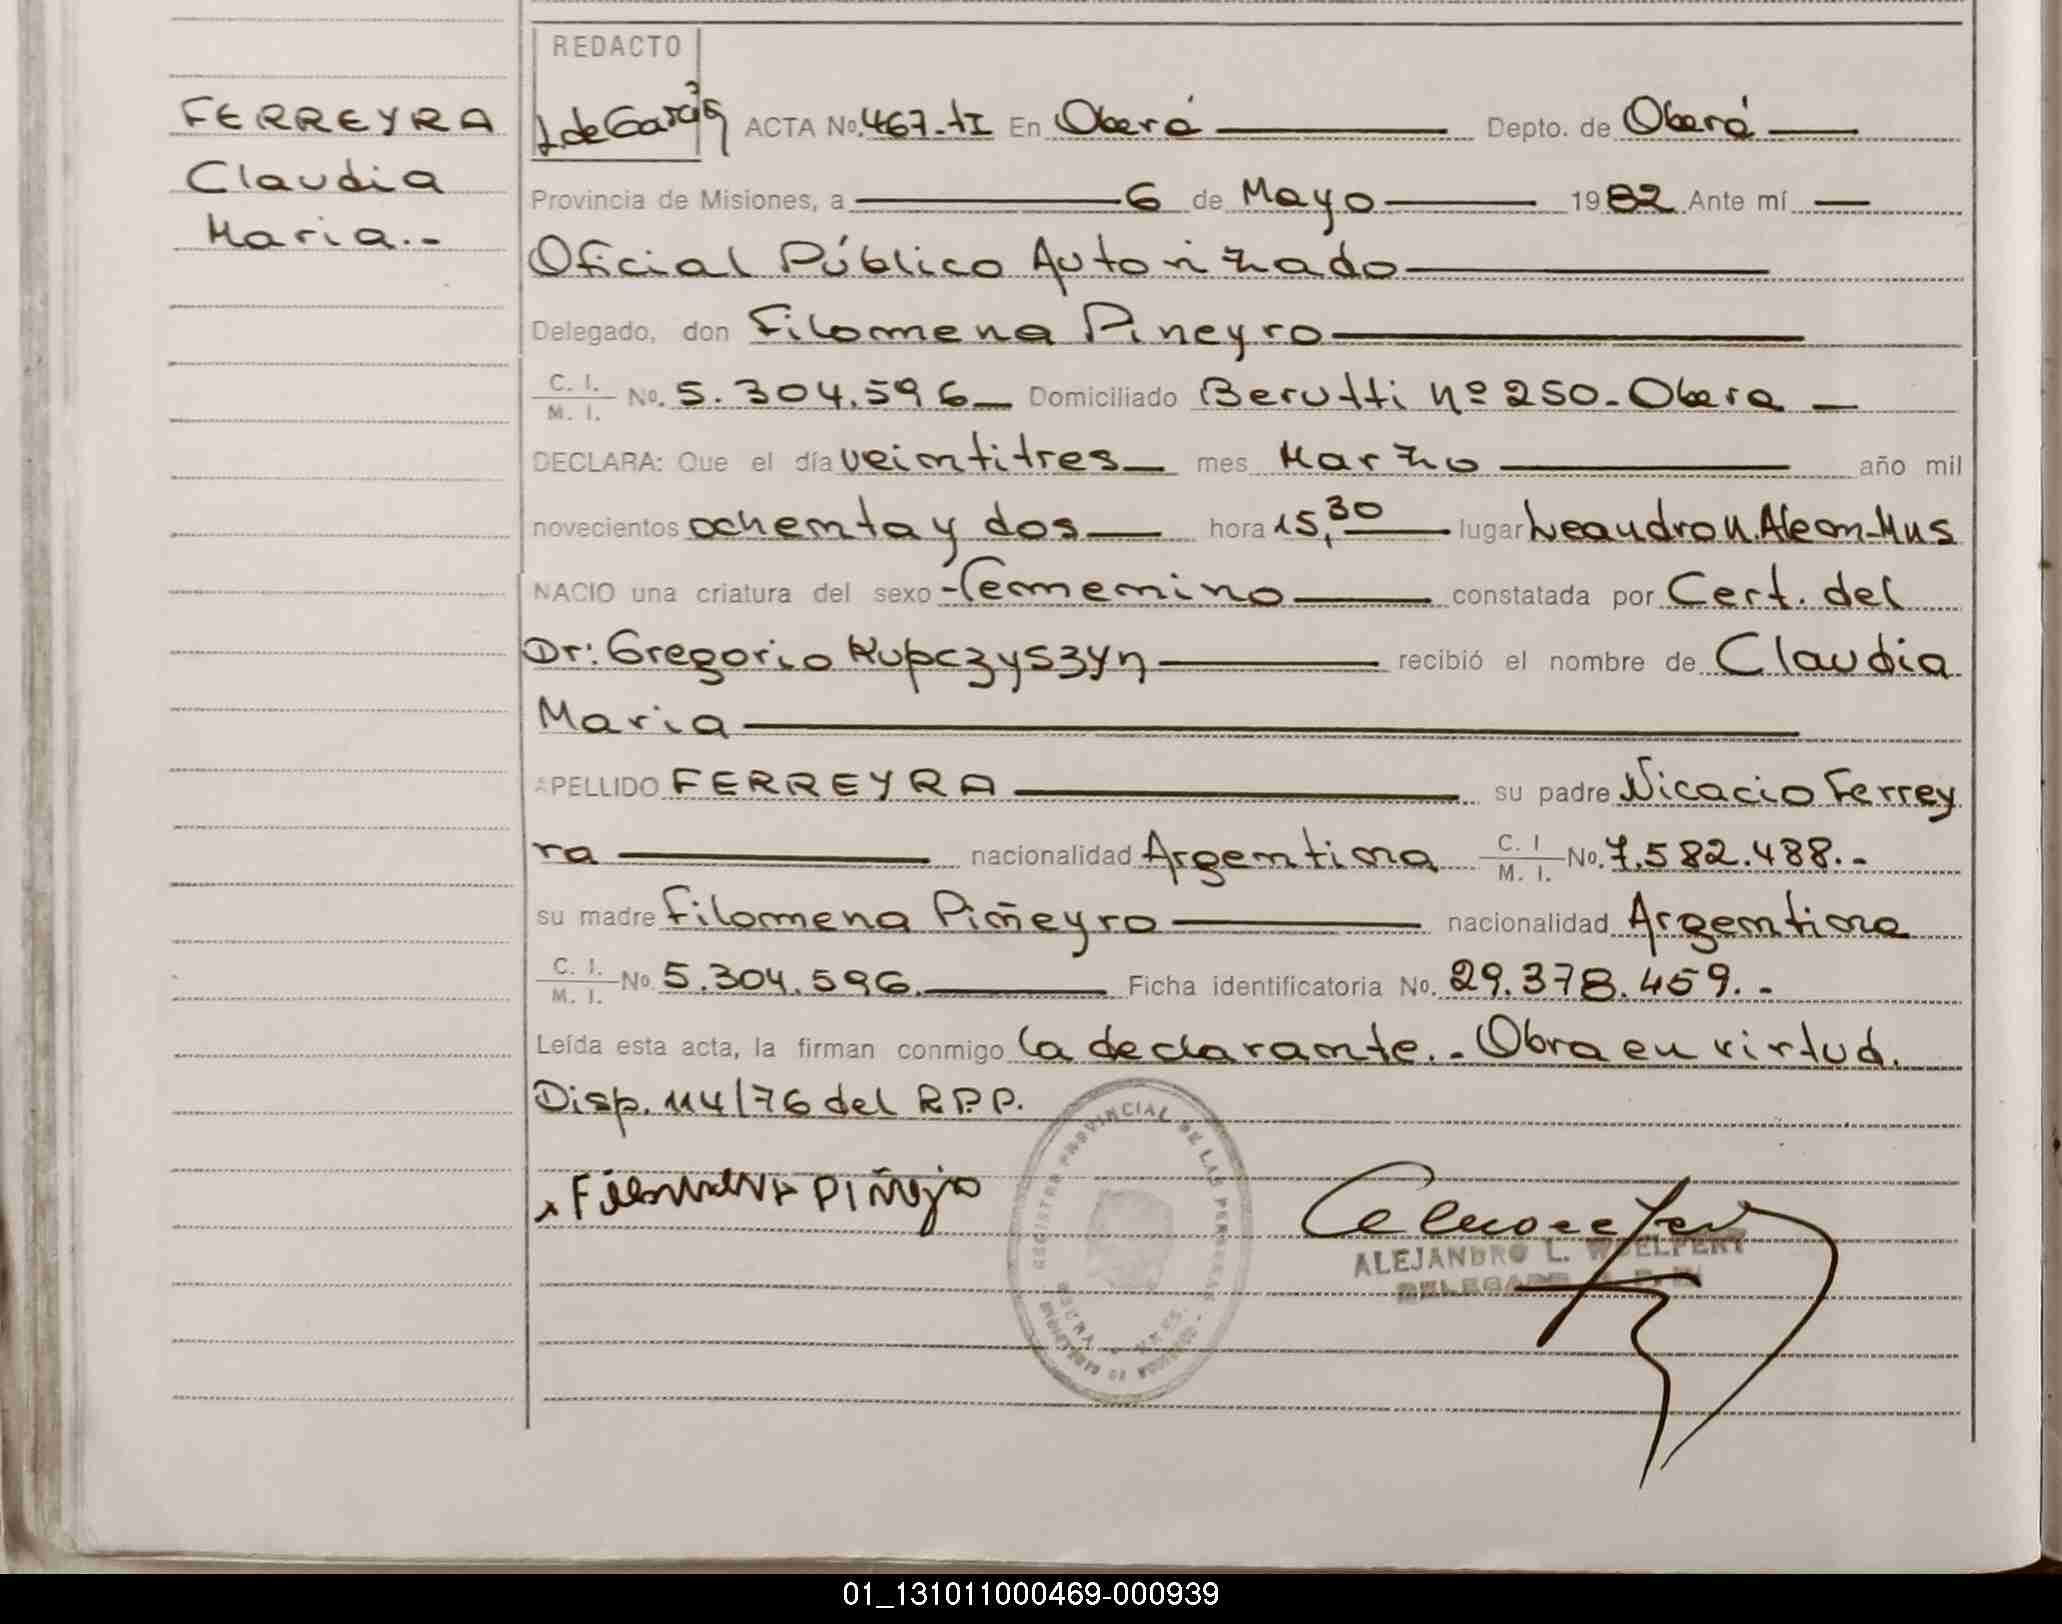 REDACTO
FERREYRA
Claudia
Maria.-
J. de García ACTA No. 467-tI En Oberá Depto. de Oberá
Provincia de Misiones, a 6 de Mayo 1982 Ante mí
Oficial Público Autorizado
Delegado, don Filomena Pineyro
C. I. / M. I. No. 5.304.596 Domiciliado Berutti nº 250-Obera
DECLARA: Que el día veintitres mes Marzo año mil
novecientos ochenta y dos hora 15,30 lugar Leandro N. Alem-Mns
NACIO una criatura del sexo femenino constatada por Cert. del
Dr: Gregorio Kupczyszyn recibió el nombre de Claudia
Maria
APELLIDO FERREYRA su padre Nicacio Ferrey
ra nacionalidad Argentina C. I / M. I. No. 7.582.488.-
su madre Filomena Piñeyro nacionalidad Argentina
C. I. / M. I. No. 5.304.596. Ficha identificatoria No. 29.378.459.-
Leída esta acta, la firman conmigo la declarante.- Obra en virtud.
Disp. 114/76 del R.P.P.
x Filomena Piñeyro
REGISTRO PROVINCIAL DE LAS PERSONAS
ALEJANDRO L. WOELFERT
DELEGADO
01_131011000469-000939